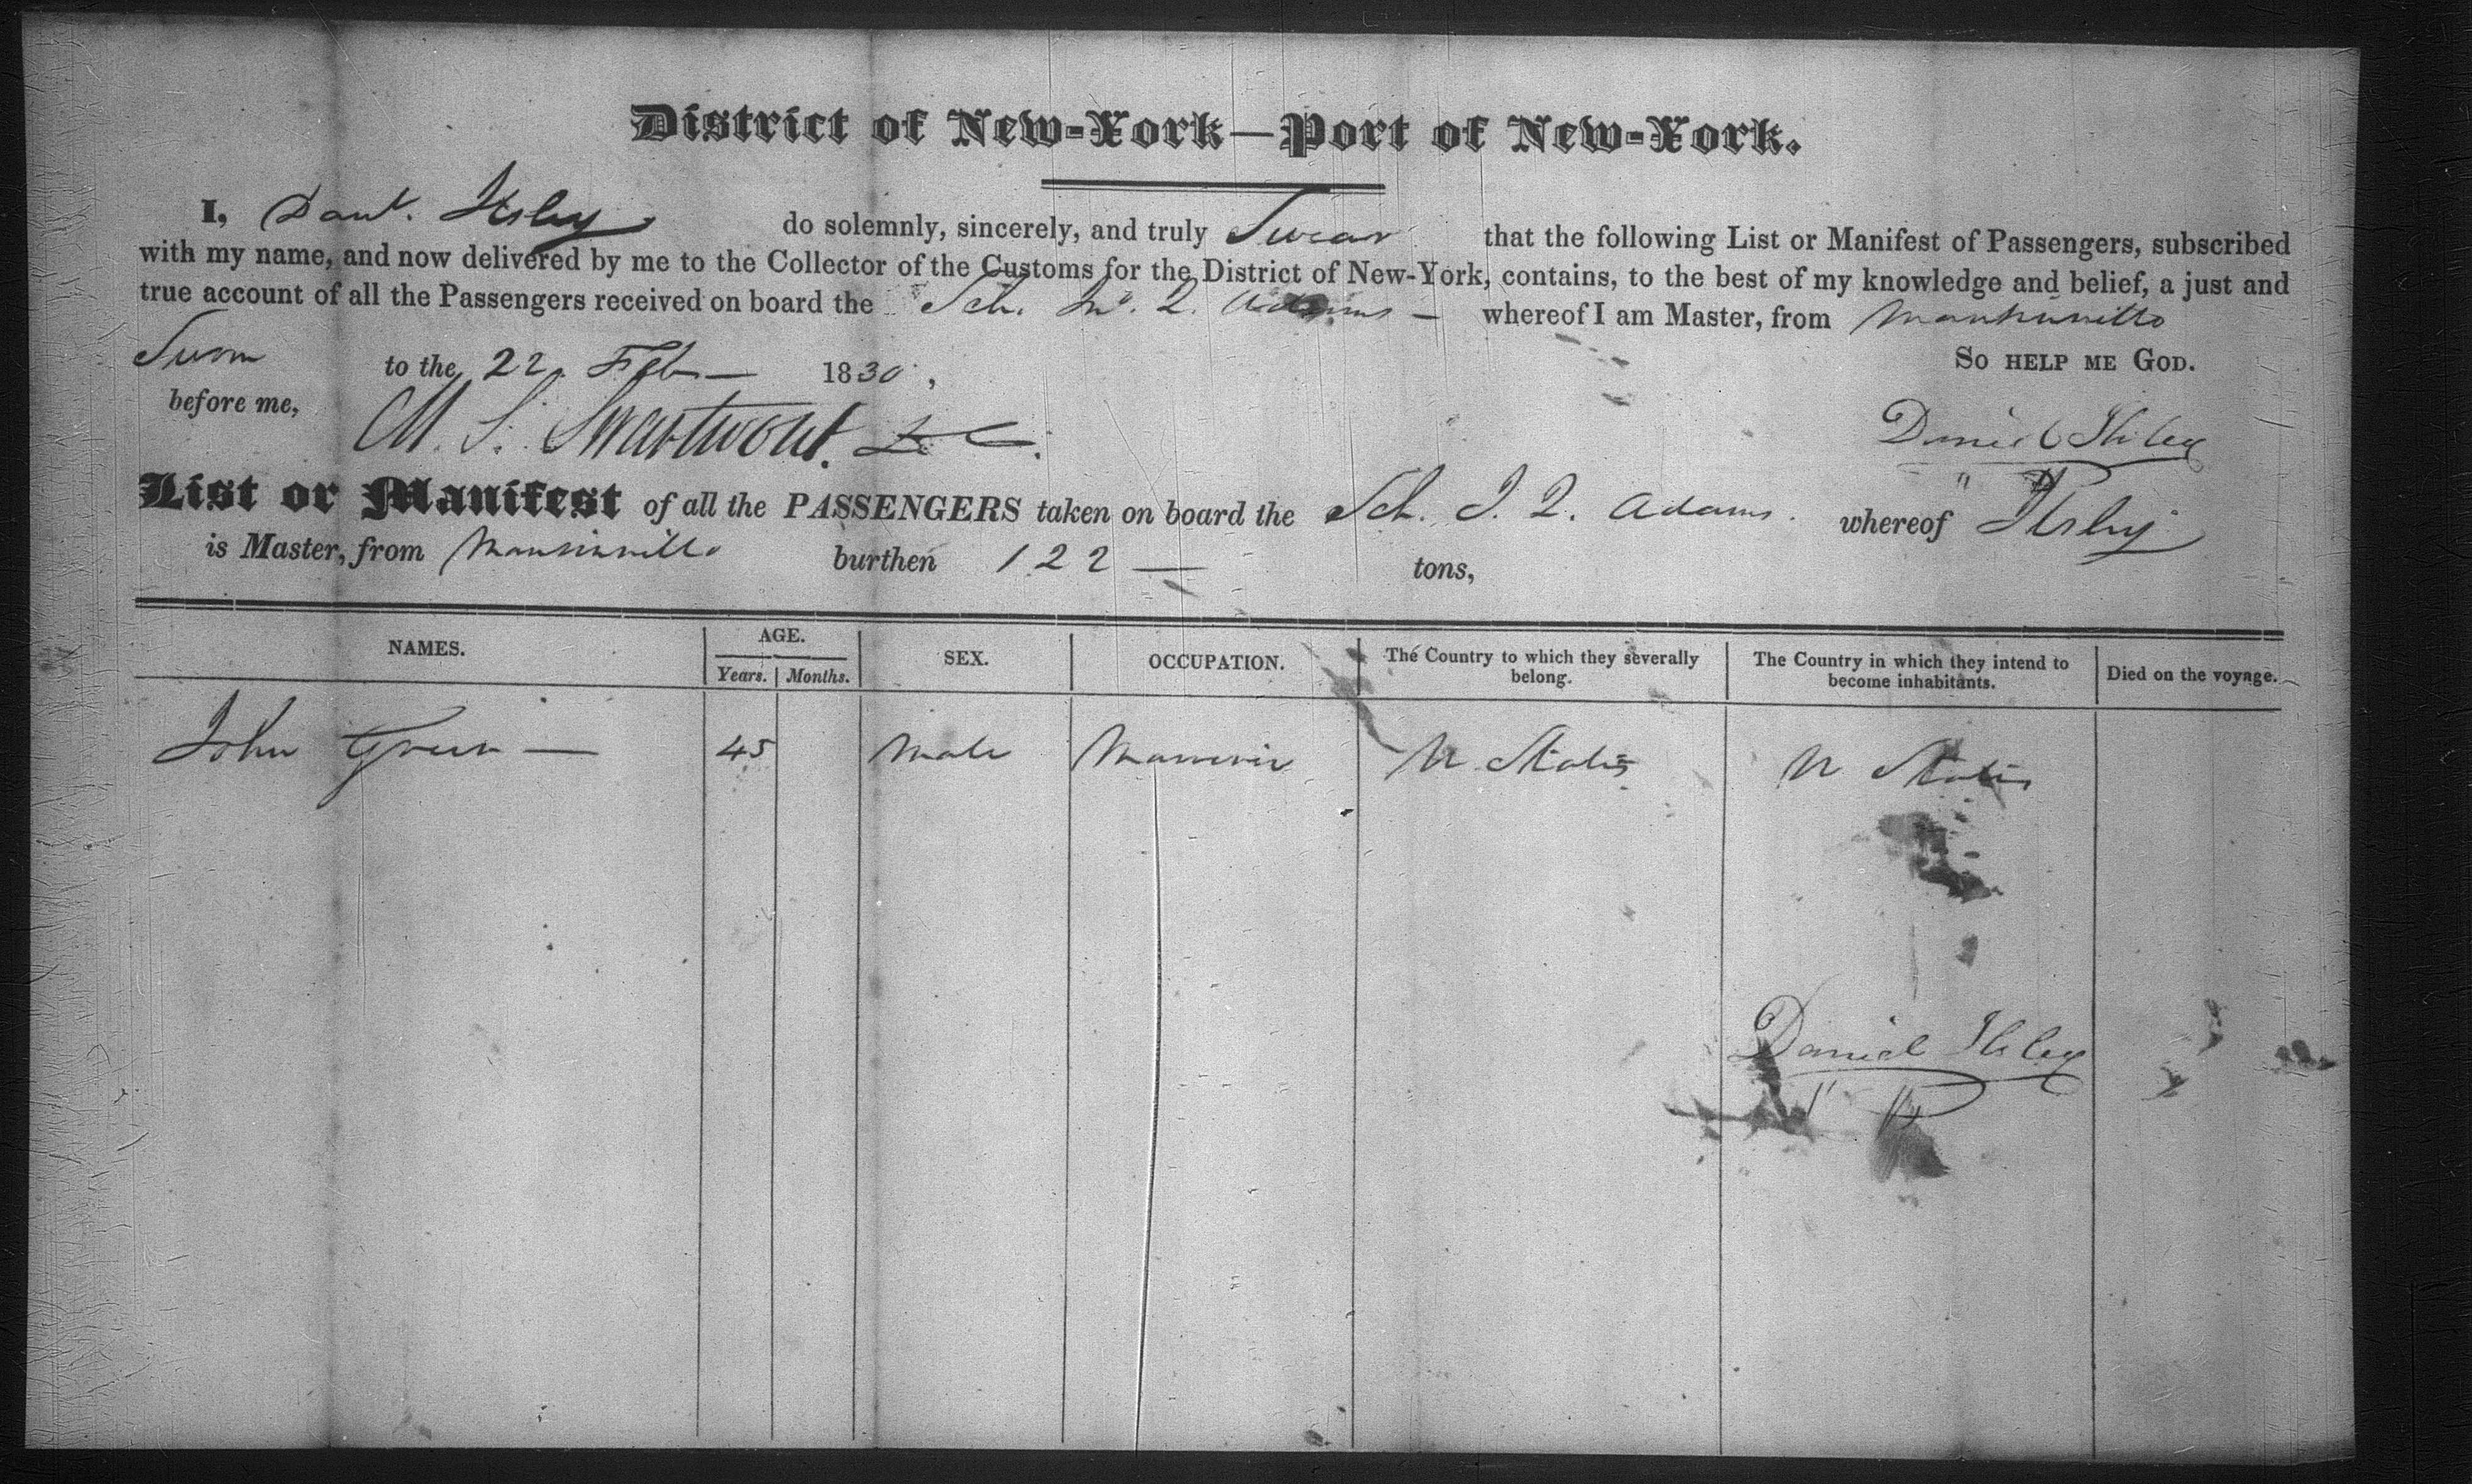 District of New-York—Port of New-York.
I, Danl. Ilsley do solemnly, sincerely, and truly Swear that the following List or Manifest of Passengers, subscribed
with my name, and now delivered by me to the Collector of the Customs for the District of New-York, contains, to the best of my knowledge and belief, a just and
true account of all the Passengers received on board the Sch. Jn°. Q. Adams — whereof I am Master, from
Sworn to the 22 Feb — 1830, SO HELP ME GOD.
before me,
M. S. Swartwout. D C. Daniel Ilsley
List or Manifest of all the PASSENGERS taken on board the Sch. J. Q. Adams. whereof Ilsley
is Master, from burthen 122 — tons,
NAMES. AGE. SEX. OCCUPATION. The Country to which they severally belong. The Country in which they intend to become inhabitants. Died on the voyage.
Years. Months.
John Green — 45 Male Marriner U States U States
Daniel Ilsley